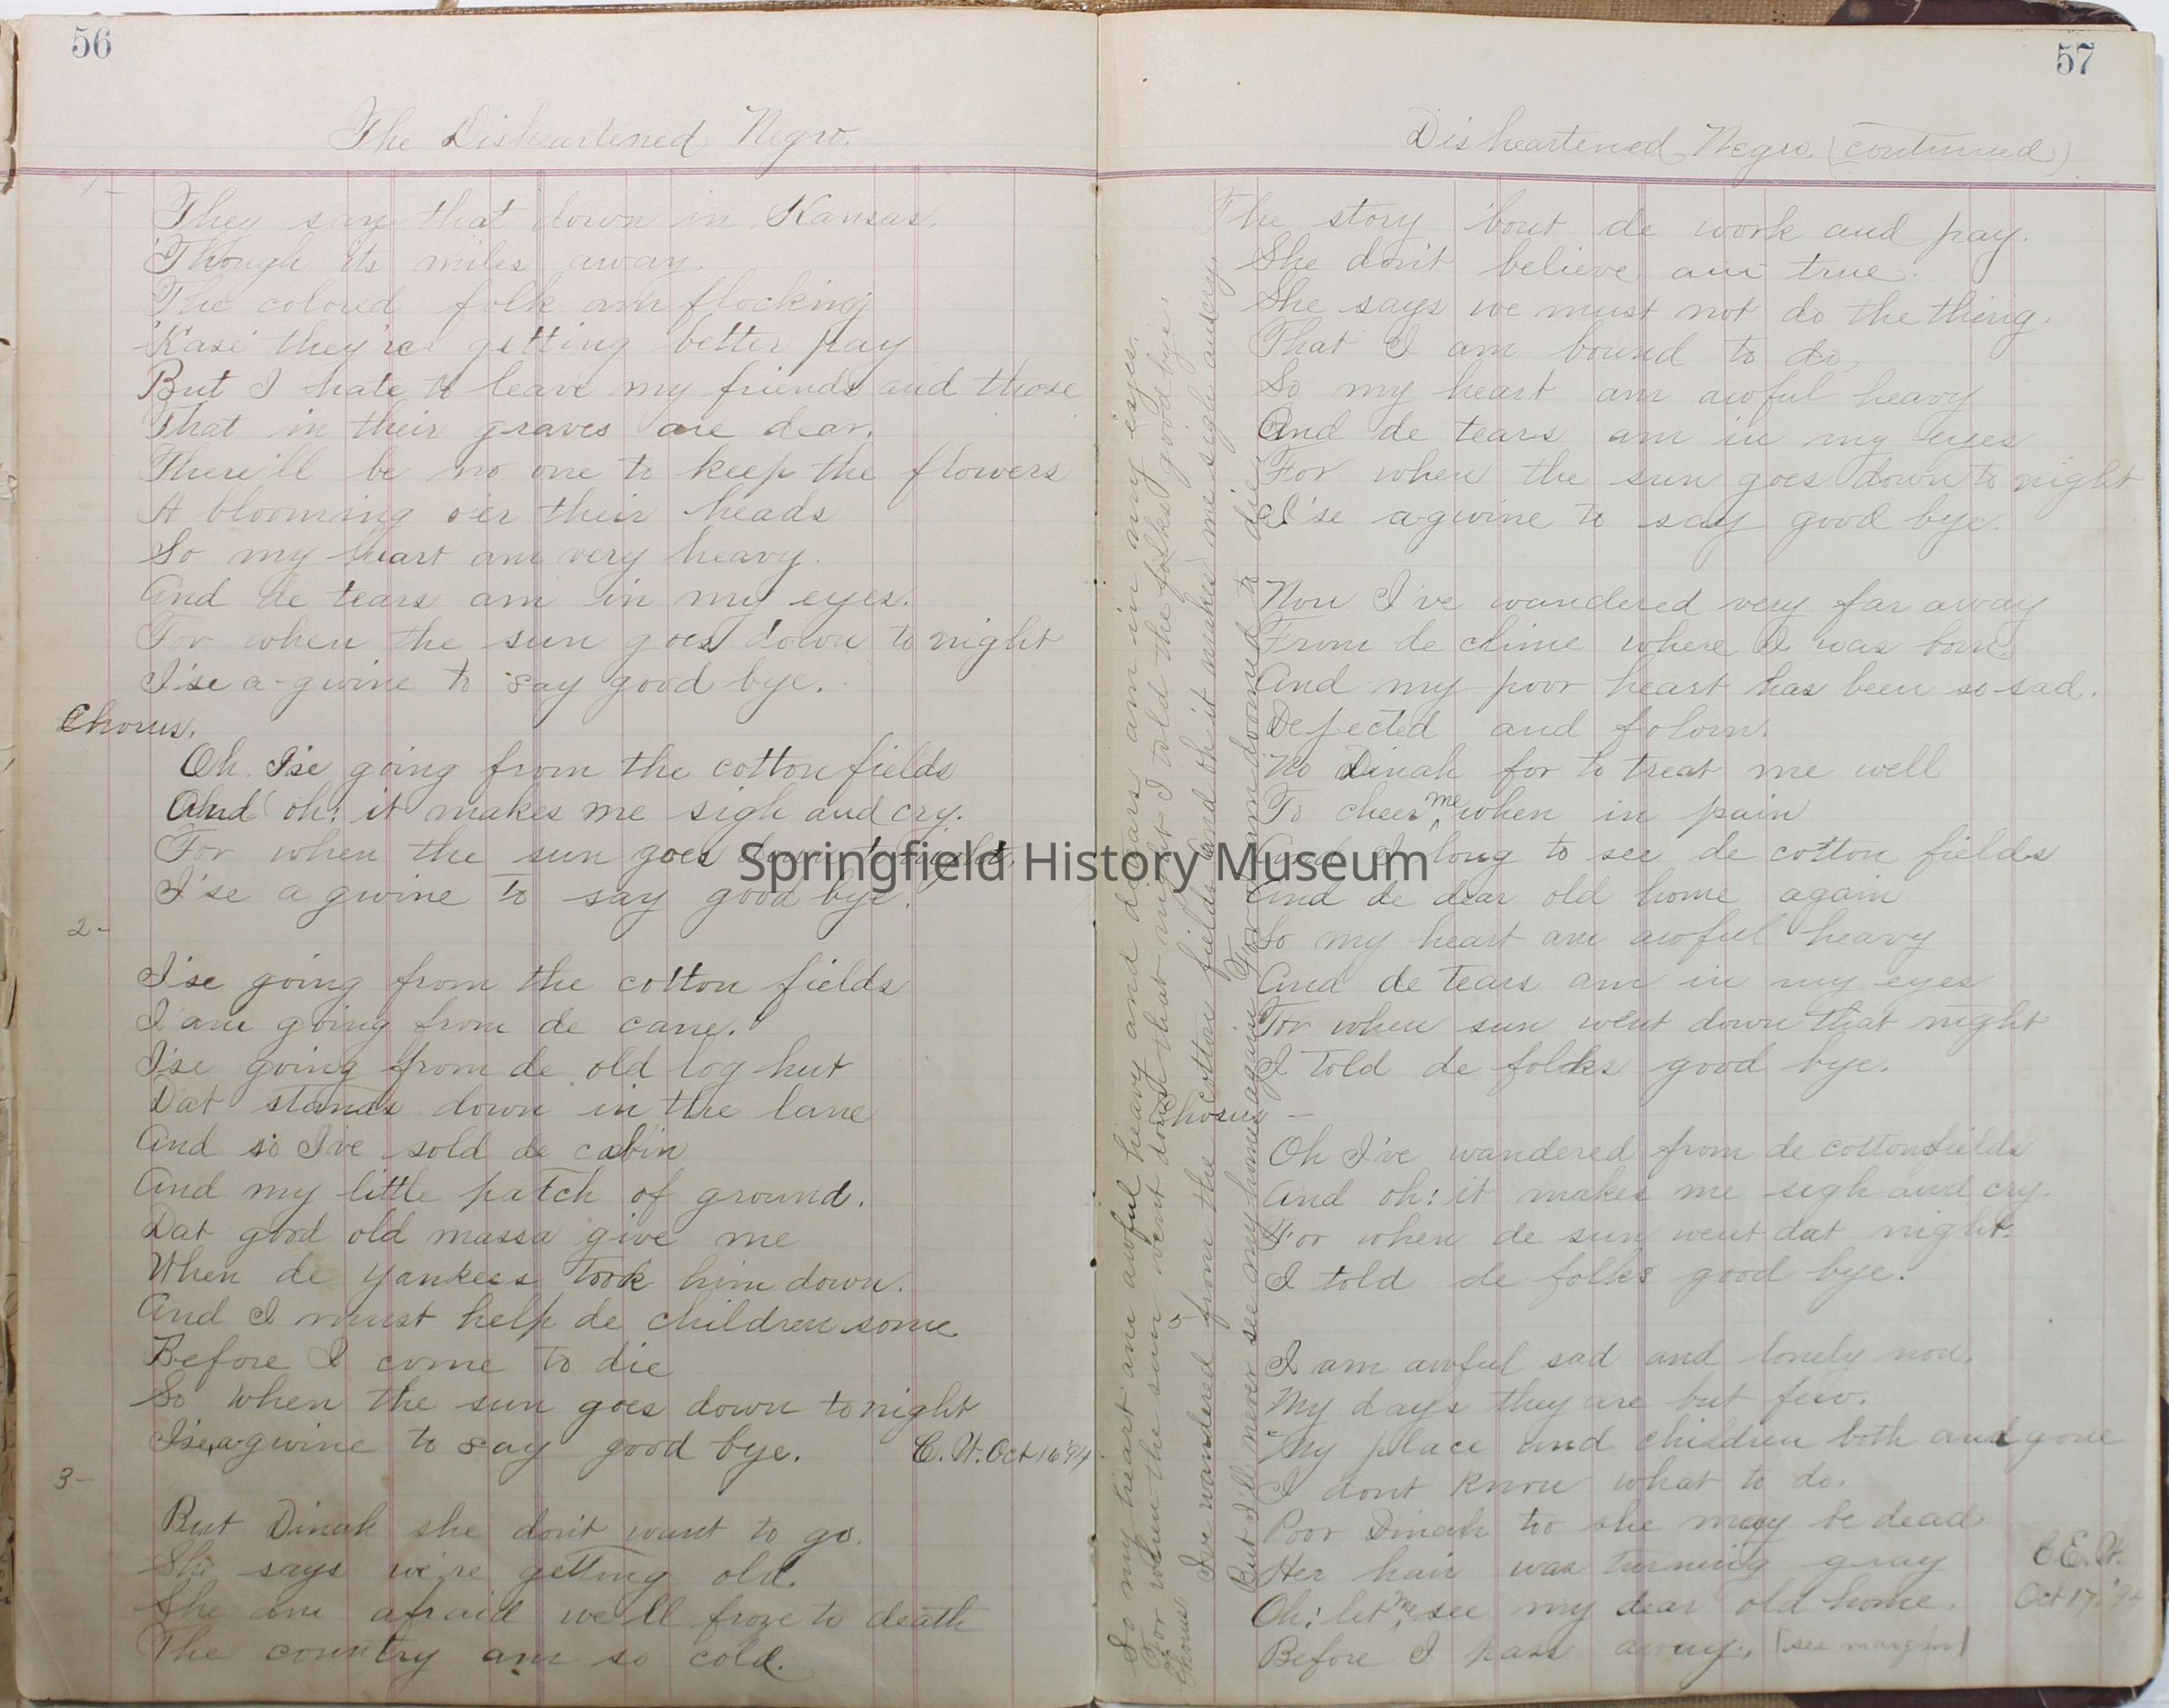 56
The Disheartened Negro.
1-
They say that down in Kansas.
'Though its miles away.
The colored folk am flocking
'Kase they're getting better pay
But I hate to leave my friends and those
That in their graves are dear.
There'll be no one to keep the flowers
A blooming o'er their heads
So my heart am very heavy.
And de tears am in my eyes.
For when the sun goes down to night
I'se a-gwine to say good bye.
Chorus.
Oh I'se going from the cotton fields
And oh! it makes me sigh and cry.
For when the sun goes down to night,
I'se a gwine to say good bye.
2-
I'se going from the cotton fields
I am going from de cane.
I'se going from de old log hut
Dat stands down in the lane
And so I've sold de cabin
And my little patch of ground.
Dat good old massa give me
When de Yankees took him down.
And I must help de children some
Before I come to die
So when the sun goes down to night
I'se a-gwine to say good bye.
C. H. Oct 16 '94
3-
But Dinah she don't want to go.
She says we're getting old.
She am afraid we'll froze to death
The country am so cold.
57
Disheartened Negro. (continued)
The story 'bout de work and pay.
She don't believe am true.
She says we must not do the thing.
That I am bound to do,
So my heart am awful heavy
And de tears am in my eyes
For when the sun goes down to night
I'se a-gwine to say good bye.
Now I've wandered very far away
From de clime where I was born
And my poor heart has been so sad.
Dejected and folorn.
No Dinah for to treat me well
To cheer me when in pain
And I long to see de cotton fields
And de dear old home again
So my heart am awful heavy
And de tears am in my eyes
For when sun went down that night
I told de folks good bye.
Chorus -
Oh I've wandered from de cotton fields
And oh! it makes me sigh and cry.
For when de sun went dat night.
I told de folks good bye.
I am awful sad and lonely now.
My days they are but few.
My place and children both and gone
I dont know what to do.
Poor Dinah too she may be dead
Her hair was turning gray
Oh! let me see my dear old home.
Before I pass away. [see margin]
C. E. H.
Oct 17, '94
So my heart am awful heavy and de tears am in my eyes.
For when the sun went down that night I told the folks good bye,
Chorus
I've wandered from the cotton fields And oh it makes me sigh and cry.
But I'll never see my home again For I am doomed to die
Springfield History Museum